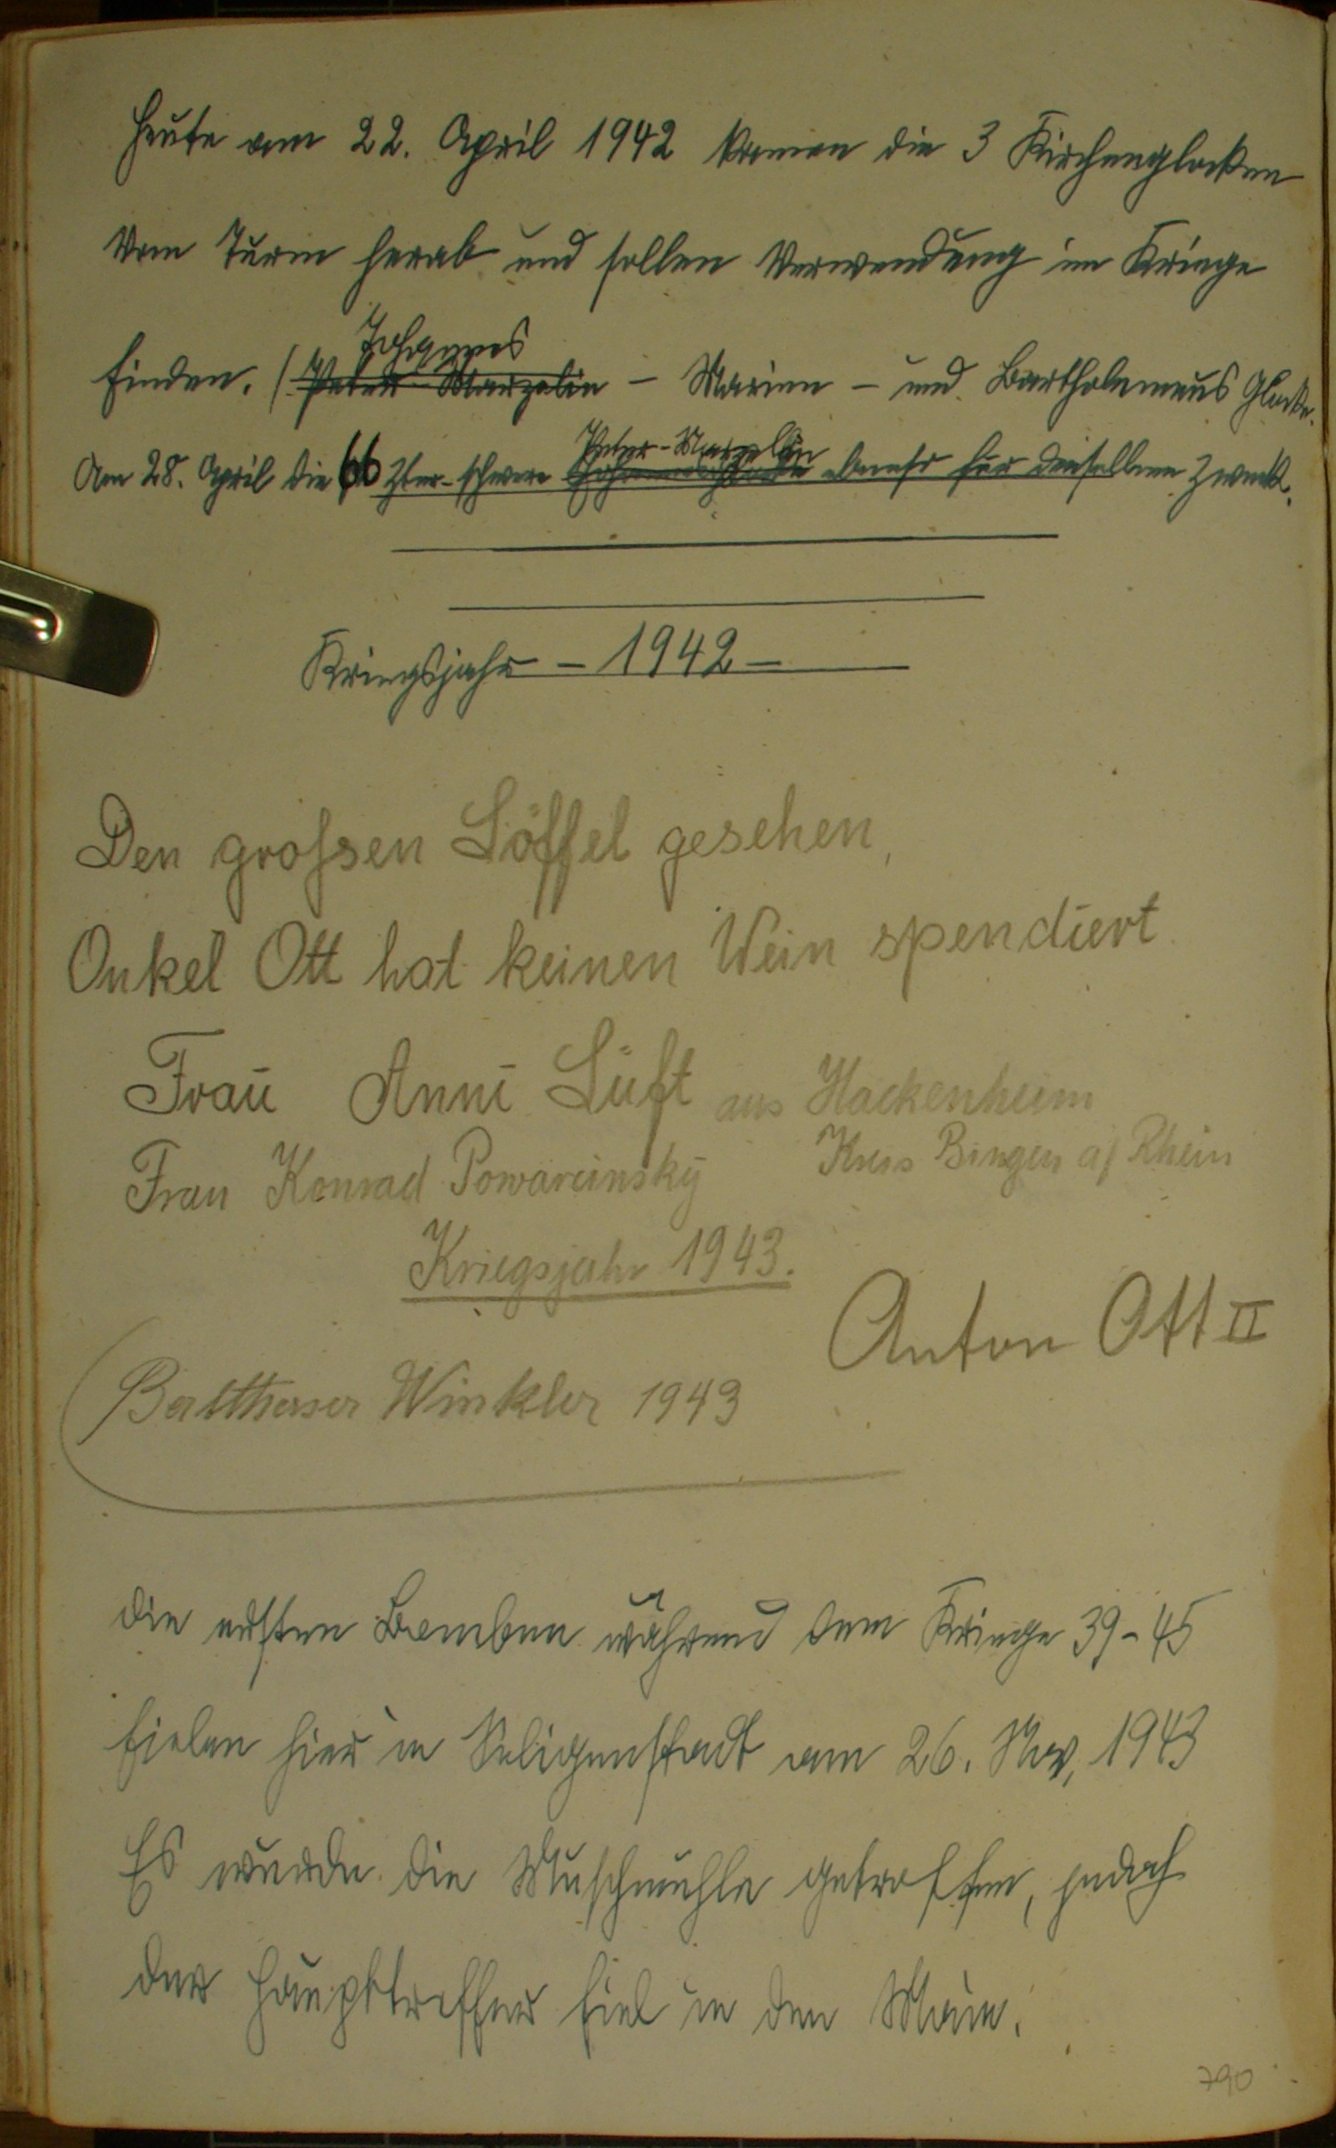 Heute am 22. April 1942 kamen die 3 Kirchenglocken
vom Turm herab und sollen Verwendung im Kriege
Johannes
finden. (Peter Marzelin – Marien – und Bartholomeus Glocke.
Peter-Marzelin
Am 28. April die 66 Ztr. schwere ebenso für denselben Zweck.
Kriegsjahr – 1942 –
Den grossen Löffel gesehen,
Onkel Ott hat keinen Wein spendiert
Frau Anni Luft aus Hackenheim
Frau Konrad Powarcinsky Kreis Bingen a/ Rhein
Kriegsjahr 1943.
Anton Ott II
Balthaser Winkler 1943
die ersten Bomben während dem Kriege 39-45
fielen hier in Seligenstadt am 26. Nov. 1943
Es wurde die Muschmühle getroffen, jedoch
der Haupttreffer fiel in den Main.
790